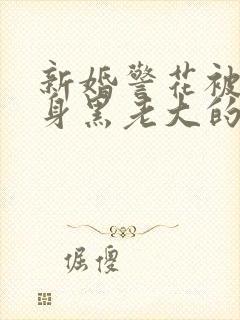 新婚警花被
身黑老大的
倔傻